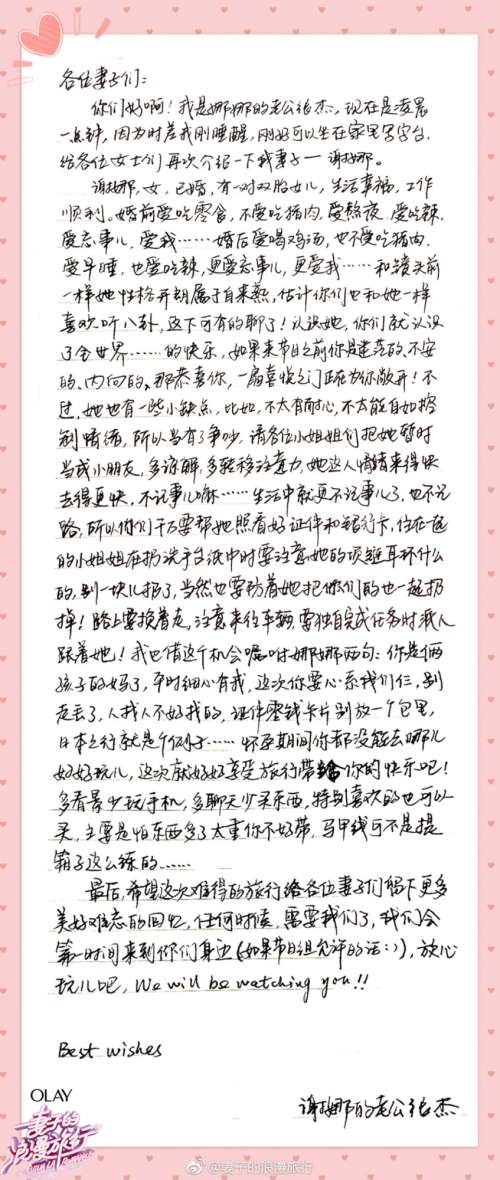 各位妻子们：
你们好啊！我是娜娜的老公张杰，现在是凌晨
一点钟，因为时差我刚睡醒，刚好可以坐在家里写字台，
给各位女士们再次介绍一下我妻子—谢娜。
谢娜，女，已婚，有一对双胞女儿，生活幸福，工作
顺利。婚前爱吃零食，不爱吃猪肉，爱熬夜，爱吃辣，
爱忘事儿，爱我……婚后爱喝鸡汤，也不爱吃猪肉，
爱早睡，也爱吃辣，更爱忘事儿，更爱我……和镜头前
一样她性格开朗属于自来熟，估计你们也和她一样
喜欢听八卦，这下可有的聊了！认识她，你们就认识
了全世界……的快乐，如果来节目之前你是迷茫的、不安
的、内向的，那恭喜你，一扇喜悦之门正在为你敞开！不
过，她也有一些小缺点，比如，不太有耐心，不太能自如控
制情绪，所以当有了争吵，请各位小姐姐们把她暂时
当成小朋友，多谅解，多转移注意力，她这人情绪来得快
去得更快，不记事儿嘛……生活中就更不记事儿了，也不认
路，所以你们千万要帮她照看好证件和银行卡，住在一起
的小姐姐在扔洗手台纸巾时要注意她的项链耳环什么
的，别一块儿扔了，当然也要防着她把你们的也一起扔
掉！路上要挨着走，注意来往车辆，要独自完成任务时找人
跟着她！我也借这个机会嘱咐娜娜两句：你是俩
孩子的妈了，平时细心有我，这次你要心系我们仨，别
走丢了，人找人不好找的，证件零钱卡片别放一个包里，
日本之行就是个例子……怀孕期间你都没能去哪儿
好好玩儿，这次就好好享受旅行带给你的快乐吧！
多看景少玩手机，多聊天少买东西，特别喜欢的也可以
买，主要是怕东西多了太重你不好带，马甲线可不是提
箱子这么练的……
最后，希望这次难得的旅行给各位妻子们留下更多
美好难忘的回忆，任何时候，需要我们了，我们会
第一时间来到你们身边（如果节目组允许的话:)），放心
玩儿吧，We will be watching you!!
Best wishes
谢娜的老公张杰
OLAY
妻子的
浪漫旅行
@妻子的浪漫旅行